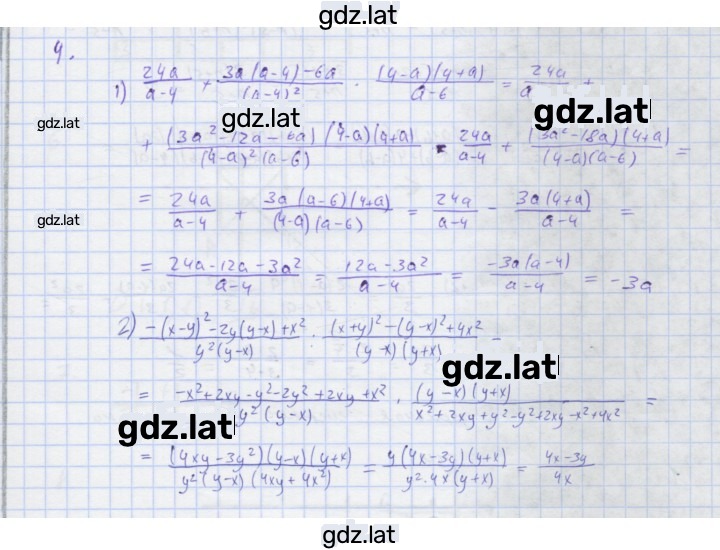 gdz.lat
9.
1) 24a/(a-4) + (3a(a-4)-6a)/(a-4)² · ((4-a)(4+a))/(a-6) = 24a/a +
gdz.lat gdz.lat gdz.lat
+ ((3a²-12a-6a)(4-a)(4+a))/((4-a)²(a-6)) = 24a/(a-4) + ((3a²-18a)(4+a))/((4-a)(a-6)) =
= 24a/(a-4) + (3a(a-6)(4+a))/((4-a)(a-6)) = 24a/(a-4) - (3a(4+a))/(a-4) =
gdz.lat
= (24a-12a-3a²)/(a-4) = (12a-3a²)/(a-4) = (-3a(a-4))/(a-4) = -3a
2) (-(x-y)²-2y(y-x)+x²)/(y²(y-x)) : ((x+y)²-(y-x)²+4x²)/((y-x)(y+x)) =
gdz.lat
= (-x²+2xy-y²-2y²+2xy+x²)/(y²(y-x)) · ((y-x)(y+x))/(x²+2xy+y²-y²+2xy-x²+4x²) =
gdz.lat
= ((4xy-3y²)(y-x)(y+x))/(y²(y-x)(4xy+4x²)) = (y(4x-3y)(y+x))/(y²·4x(y+x)) = (4x-3y)/4x
gdz.lat